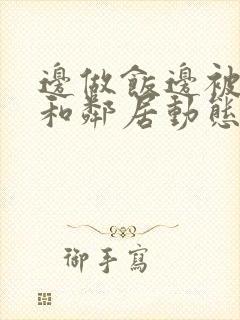 邊做飯邊被
和鄰居動態
御手寫